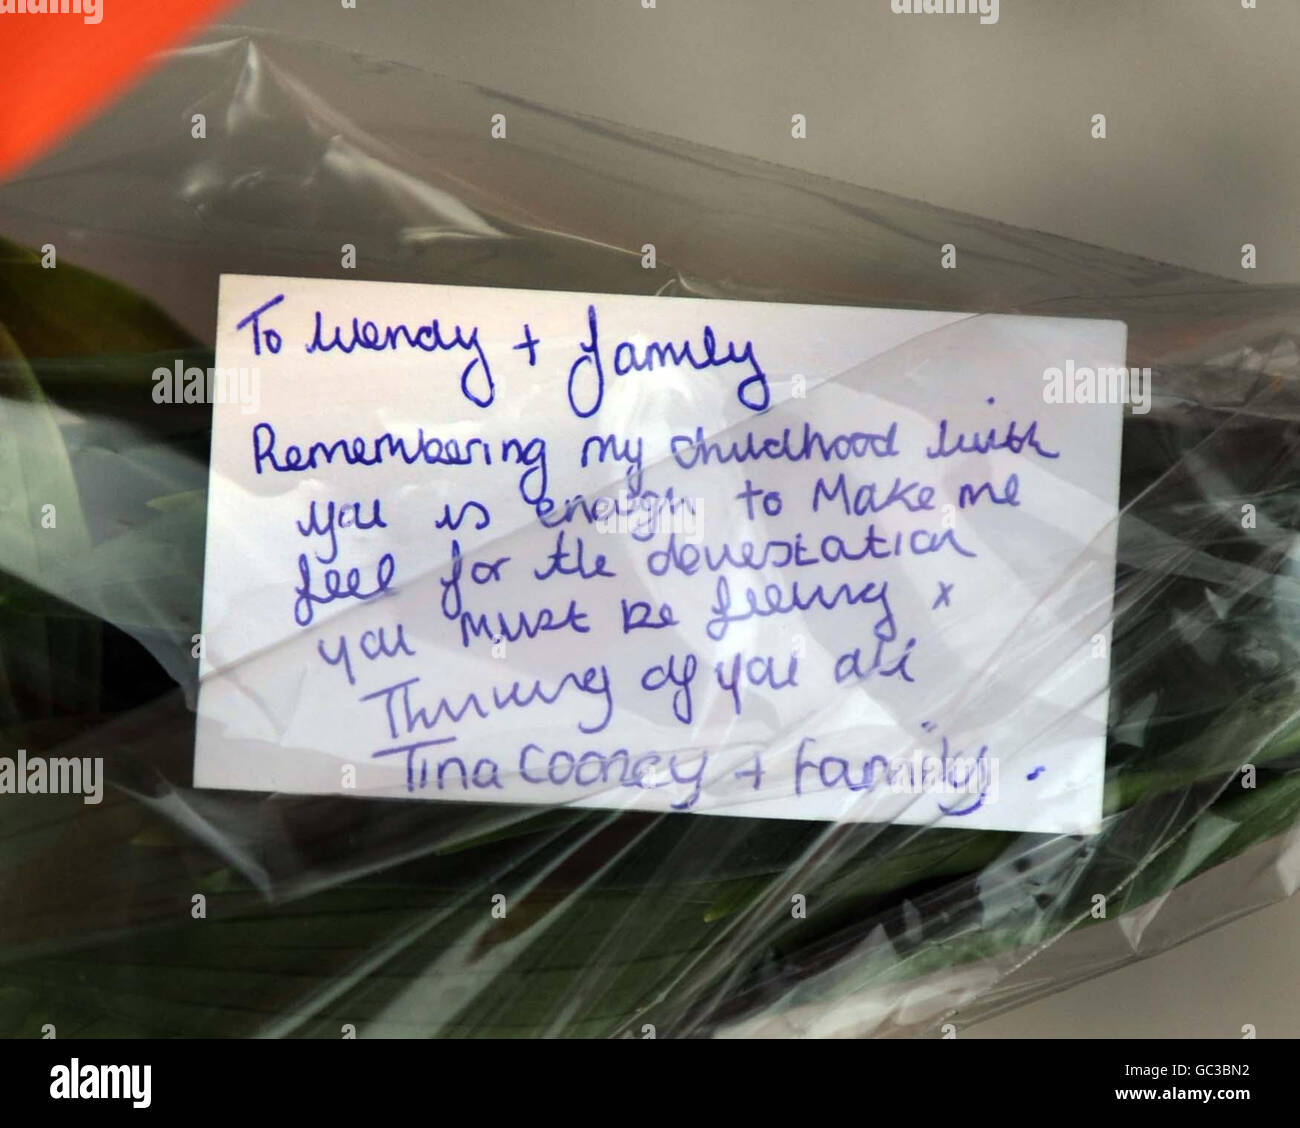 To Wendy + family
Remembering my childhood with
you is enough to Make me
feel for the devestation
you must be feeling x
Thinking of you all
Tina Cooney + family.
alamy
Image ID: GC3BN2
www.alamy.com